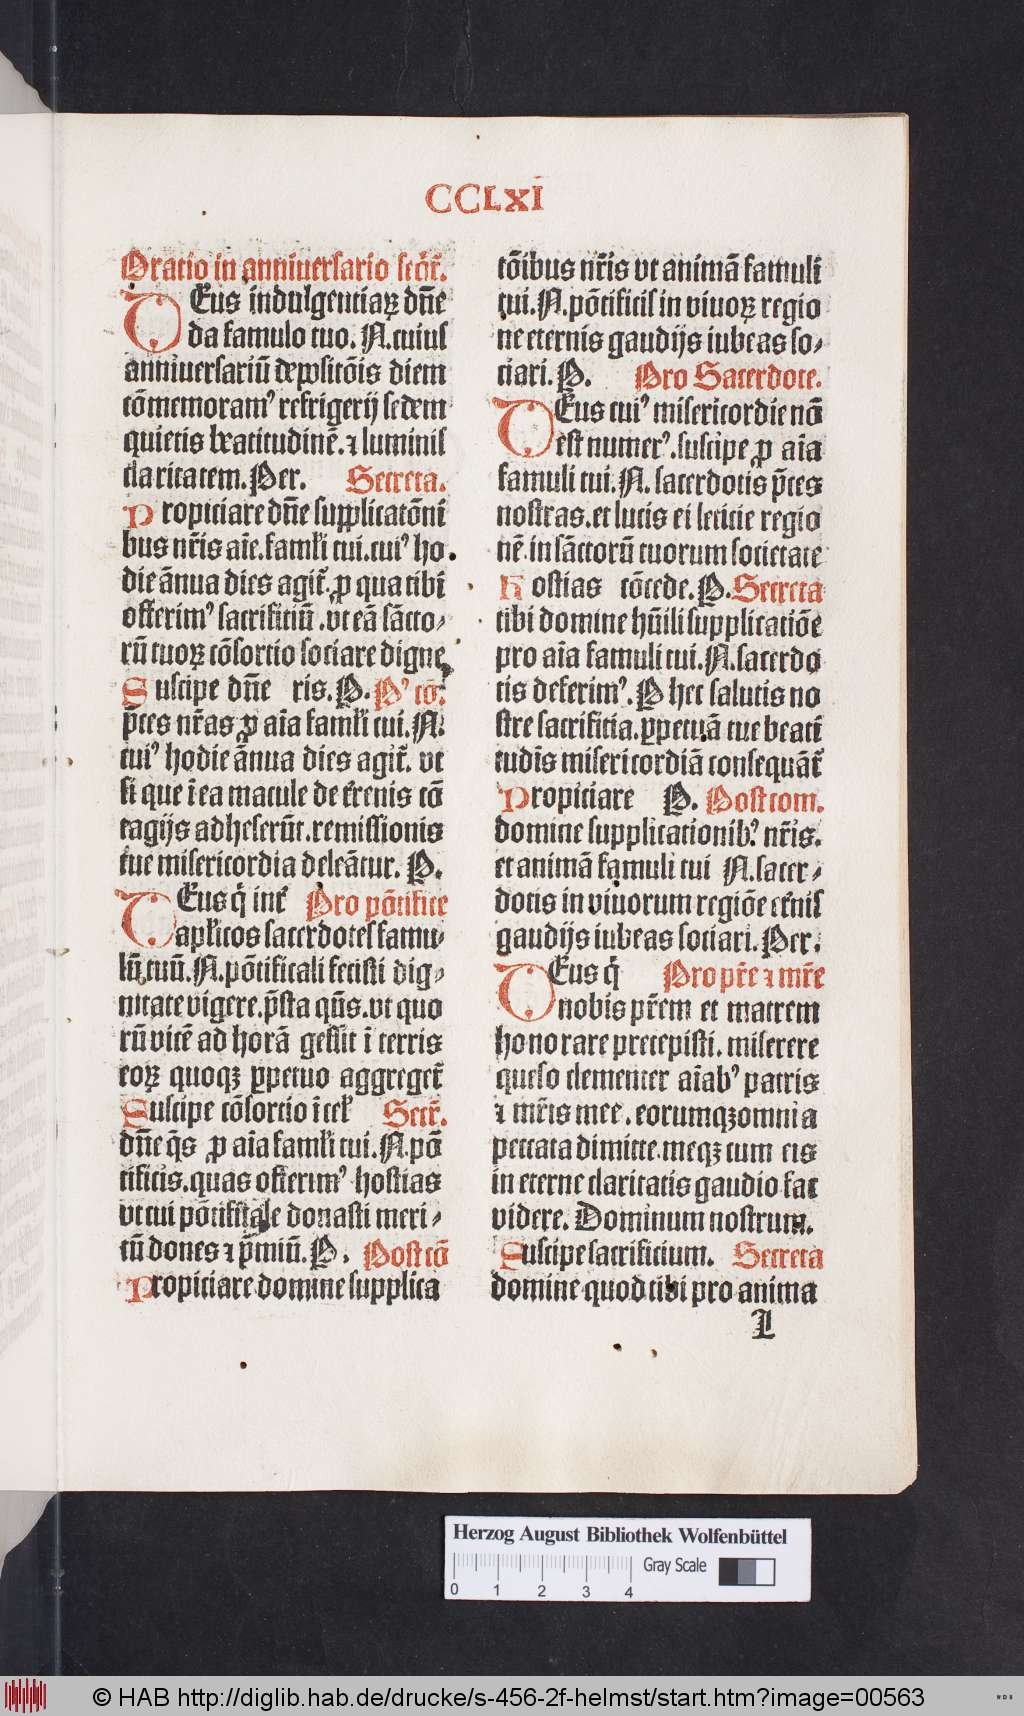 CCLXI
Oratio in anniuersario scõꝝ.
DEus indulgentiaꝝ dñe
da famulo tuo. N. cuius
anniuersariũ depositõis diem
cõmemoramꝰ refrigerij sedem
quietis beatitudinẽ. ⁊ luminis
claritatem. Per. Secreta.
Propiciare dñe supplicatõni
bus nr̃is aĩe. famĺi tui. cuiꝰ ho
die ãnua dies agit̃. ꝓ qua tibi
offerimꝰ sacrificiũ. vt eã sãcto⸗
rũ tuoꝝ cõsortio sociare digne
Suscipe dñe ris. P. Pꝰ cõ.
p̃ces nr̃as ꝓ aĩa famĺi tui. N.
cuiꝰ hodie ãnua dies agit̃. vt
si que ĩ ea macule de tr̃enis cõ
tagijs adheserũt. remissionis
tue misericordia deleãtur. P.
DEus q̇ int̃ Pro põtifice
apĺicos sacerdotes famu⸗
lũ tuũ. N. põtificali fecisti dig⸗
nitate vigere. p̃sta q̃s. vt quo
rũ vicẽ ad horã gessit ĩ terris
eoꝝ quoqꝫ ꝑpetuo aggreget̃
Suscipe cõsortio ĩ cel̃ Secr̃.
dñe q̃s ꝓ aĩa famĺi tui. N. põ
tificis. quas offerimꝰ hostias
vt cui põtificale donasti meri⸗
tũ dones ⁊ p̃miũ. P. Postcõ
Propiciare domine supplica
tõibus nr̃is vt animã famuli
tui. N. põtificis in viuoꝝ regio
ne eternis gaudijs iubeas so⸗
ciari. P. Pro Sacerdote.
DEus cuiꝰ misericordie nõ
est numerꝰ. suscipe ꝓ aĩa
famuli tui. N. sacerdotis p̃ces
nostras. et lucis ei leticie regio
nẽ. in sãctorũ tuorum societate
Hostias cõcede. P. Secreta
tibi domine hũili supplicatiõe
pro aĩa famuli tui. N. sacerdo
tis deferimꝰ. P hec salutis no
stre sacrificia. ꝑpetuã tue beati
tudĩs misericordiã consequãt̃
Propiciare P. Postcom.
domine supplicationibꝰ nr̃is.
et animã famuli tui N. sacer⸗
dotis in viuorum regiõe et̃nis
gaudijs iubeas sociari. Per.
DEus q̇ Pro pr̃e ⁊ mr̃e
nobis pr̃em et matrem
honorare precepisti. miserere
queso clementer aĩabꝰ patris
⁊ mr̃is mee. eorumqꝫ omnia
peccata dimitte. meqꝫ cum eis
in eterne claritatis gaudio fac
videre. Dominum nostrum.
Suscipe sacrificium. Secreta
domine quod tibi pro anima
L
Herzog August Bibliothek Wolfenbüttel
Gray Scale
0 1 2 3 4
© HAB http://diglib.hab.de/drucke/s-456-2f-helmst/start.htm?image=00563